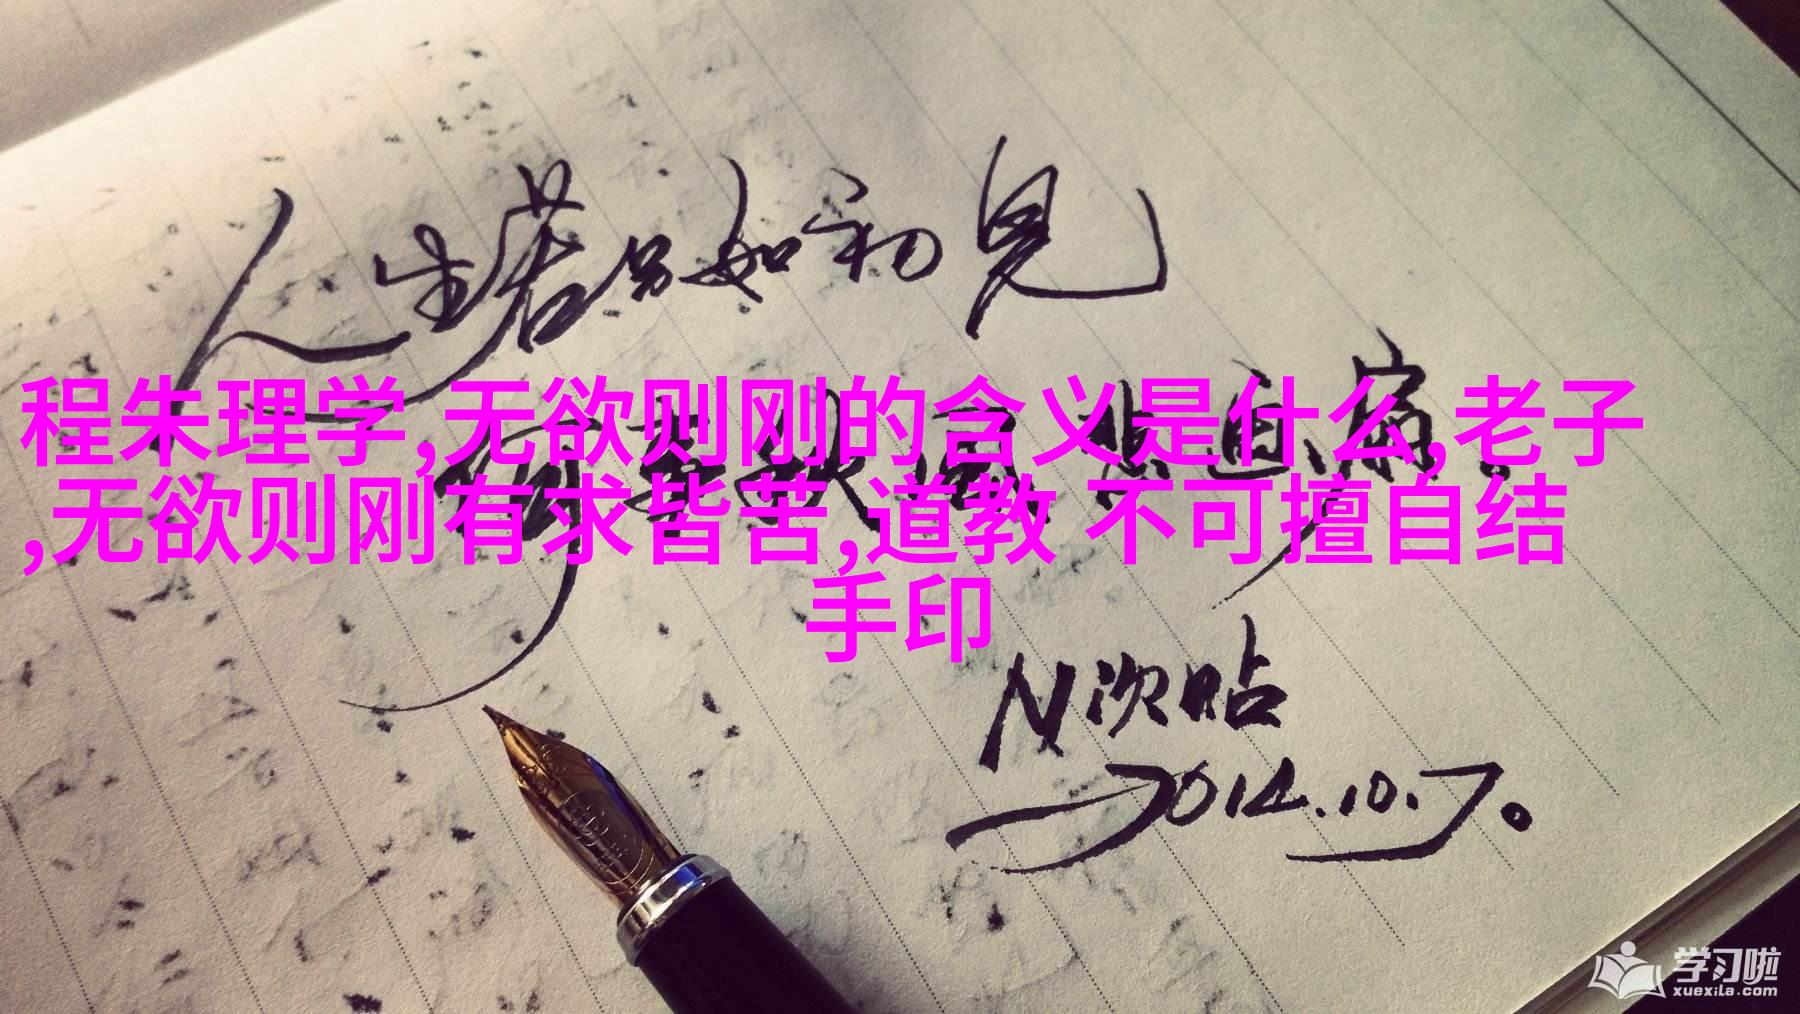 人生若只如初见
程朱理学,无欲则刚的含义是什么,老子
何事秋风悲画扇。
,无欲则刚有求皆苦,道教 不可擅自结
手印
N次贴
2014.10.7。
学习啦
xuexila.com